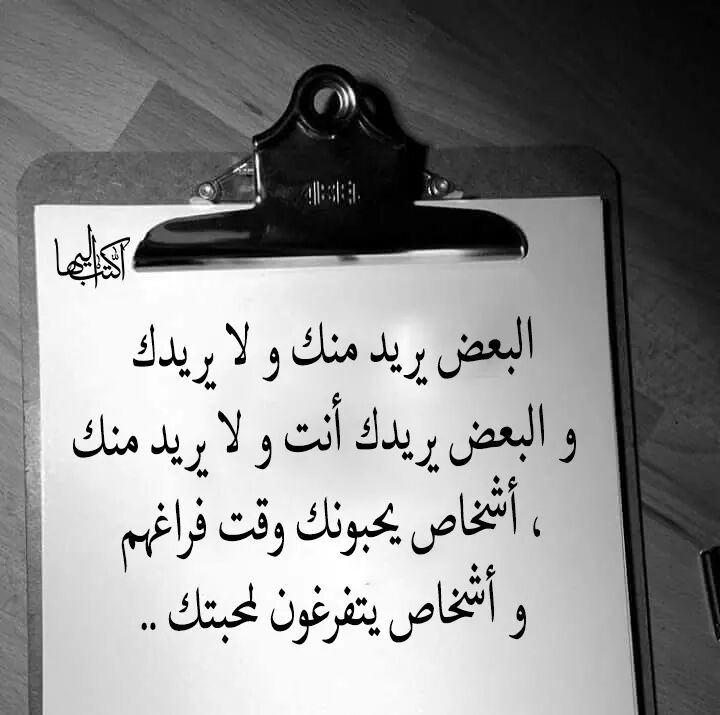 أكتب إليها
البعض يريد منك و لا يريدك
و البعض يريدك أنت و لا يريد منك
، أشخاص يحبونك وقت فراغهم
و أشخاص يتفرغون لمحبتك ..